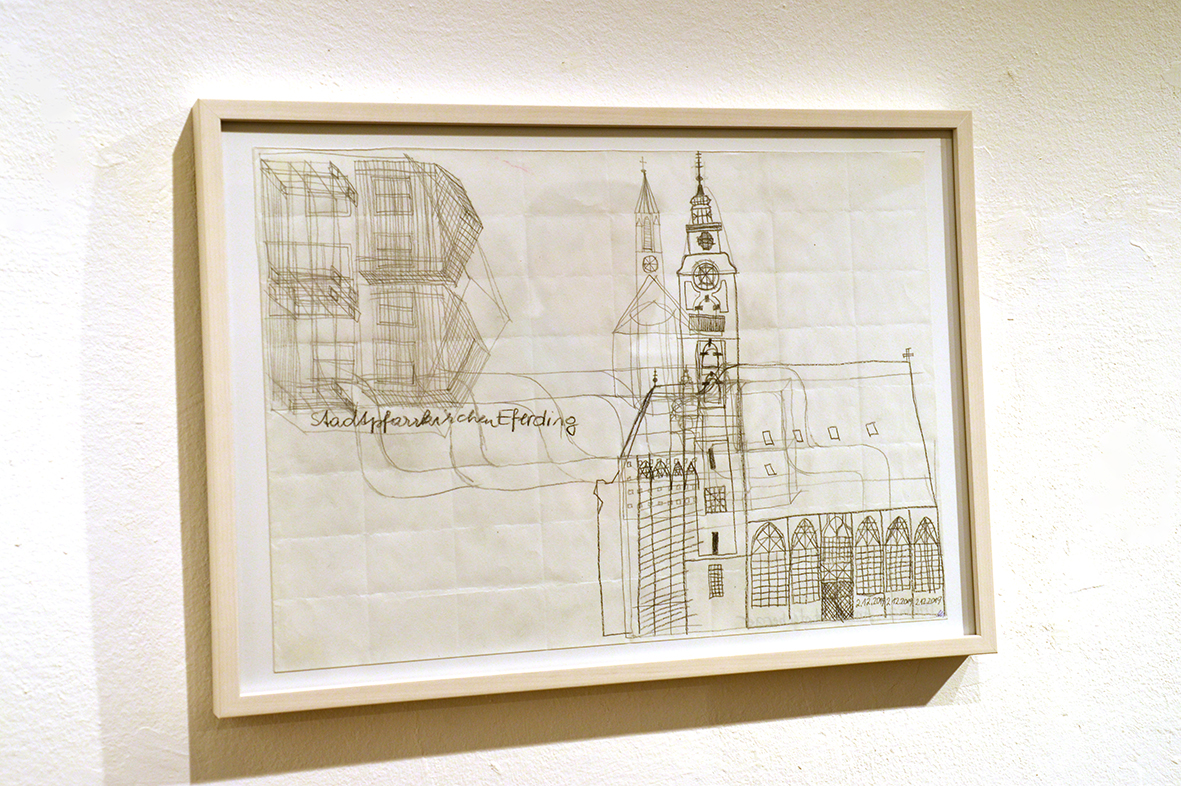 Stadtpfarrkirchen Eferding
2.12.2009 2.12.2009 2.12.2009